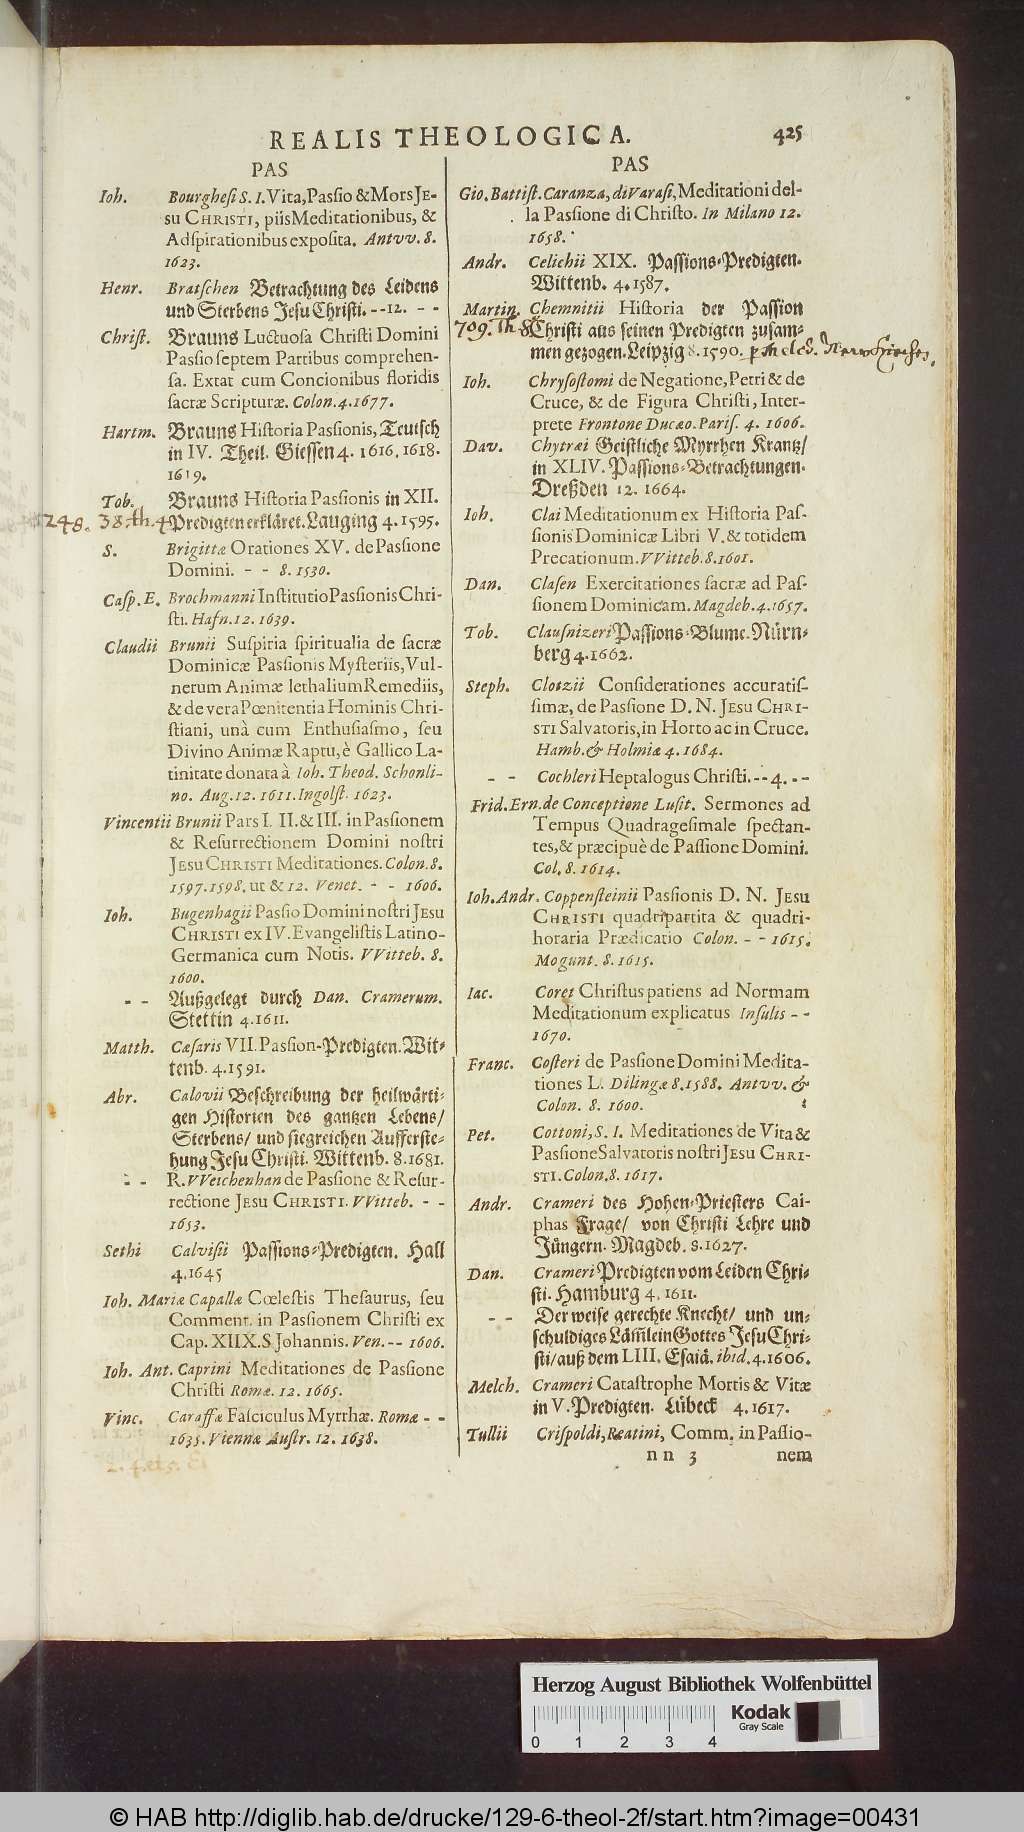 REALIS THEOLOGICA. 425
PAS
Ioh. Bourghesi S. I. Vita, Passio & Mors JE-
su CHRISTI, piis Meditationibus, &
Adspirationibus exposita. Antvv. 8.
1623.
Henr. Bratschen Betrachtung des Leidens
und Sterbens Jesu Christi. - - 12. - -
Christ. Brauns Luctuosa Christi Domini
Passio septem Partibus comprehen-
sa. Extat cum Concionibus floridis
sacræ Scripturæ. Colon. 4. 1677.
Hartm. Brauns Historia Passionis, Teutsch
in IV. Theil. Giessen 4. 1616. 1618.
1619.
Tob. Brauns Historia Passionis in XII.
248. 38. th. 4 Predigten erkläret. Lauging 4. 1595.
S. Brigittæ Orationes XV. de Passione
Domini. - - 8. 1530.
Casp. E. Brochmanni Institutio Passionis Chri-
sti. Hafn. 12. 1639.
Claudii Brunii Suspiria spiritualia de sacræ
Dominicæ Passionis Mysteriis, Vul-
nerum Animæ lethalium Remediis,
& de vera Pœnitentia Hominis Chri-
stiani, unà cum Enthusiasmo, seu
Divino Animæ Raptu, è Gallico La-
tinitate donata à Ioh. Theod. Schonli-
no. Aug. 12. 1611. Ingolst. 1623.
Vincentii Brunii Pars I. II. & III. in Passionem
& Resurrectionem Domini nostri
JESU CHRISTI Meditationes. Colon. 8.
1597. 1598. ut & 12. Venet. - - 1606.
Ioh. Bugenhagii Passio Domini nostri JESU
CHRISTI ex IV. Evangelistis Latino-
Germanica cum Notis. VVitteb. 8.
1600.
- - Außgelegt durch Dan. Cramerum.
Stettin 4. 1611.
Matth. Cæsaris VII. Passion-Predigten. Wit-
tenb. 4. 1591.
Abr. Calovii Beschreibung der heilwärti-
gen Historien des gantzen Lebens/
Sterbens/ und siegreichen Aufferste-
hung Jesu Christi. Wittenb. 8. 1681.
- - R. VVeichenhan de Passione & Resur-
rectione JESU CHRISTI. VVitteb. - -
1653.
Sethi Calvisii Passions-Predigten. Hall
4. 1645
Ioh. Mariæ Capallæ Cœlestis Thesaurus, seu
Comment. in Passionem Christi ex
Cap. XIIX. S. Johannis. Ven. - - 1606.
Ioh. Ant. Caprini Meditationes de Passione
Christi Romæ. 12. 1665.
Vinc. Caraffæ Fasciculus Myrrhæ. Romæ - -
1635. Viennæ Austr. 12. 1638.
PAS
Gio. Battist. Caranza, di Varasi, Meditationi del-
la Passione di Christo. In Milano 12.
1658.
Andr. Celichii XIX. Passions-Predigten.
Wittenb. 4. 1587.
Martin. Chemnitii Historia der Passion
709. Th 8. Christi aus seinen Predigten zusam-
men gezogen. Leipzig 8. 1590.
Ioh. Chrysostomi de Negatione, Petri & de
Cruce, & de Figura Christi, Inter-
prete Frontone Ducæo. Paris. 4. 1606.
Dav. Chytræi Geistliche Myrrhen Krantz/
in XLIV. Passions-Betrachtungen.
Dreßden 12. 1664.
Ioh. Clai Meditationum ex Historia Pas-
sionis Dominicæ Libri V. & totidem
Precationum. VVitteb. 8. 1601.
Dan. Clasen Exercitationes sacræ ad Pas-
sionem Dominicam. Magdeb. 4. 1657.
Tob. Clausnizeri Passions-Blume. Nürn-
berg 4. 1662.
Steph. Clotzii Considerationes accuratis-
simæ, de Passione D. N. JESU CHRI-
STI Salvatoris, in Horto ac in Cruce.
Hamb. & Holmiæ 4. 1684.
- - Cochleri Heptalogus Christi. - - 4. - -
Frid. Ern. de Conceptione Lusit. Sermones ad
Tempus Quadragesimale spectan-
tes, & præcipuè de Passione Domini.
Col. 8. 1614.
Ioh. Andr. Coppensteinii Passionis D. N. JESU
CHRISTI quadripartita & quadri-
horaria Prædicatio Colon. - - 1615.
Mogunt. 8. 1615.
Iac. Coret Christus patiens ad Normam
Meditationum explicatus Insulis - -
1670.
Franc. Costeri de Passione Domini Medita-
tiones L. Dilingæ 8. 1588. Antvv. &
Colon. 8. 1600.
Pet. Cottoni, S. I. Meditationes de Vita &
Passione Salvatoris nostri JESU CHRI-
STI. Colon. 8. 1617.
Andr. Crameri des Hohen-Priesters Cai-
phas Frage/ von Christi Lehre und
Jüngern. Magdeb. 8. 1627.
Dan. Crameri Predigten vom Leiden Chri-
sti. Hamburg 4. 1611.
- - Der weise gerechte Knecht/ und un-
schuldiges Läm̃lein Gottes Jesu Chri-
sti/ auß dem LIII. Esaiä. ibid. 4. 1606.
Melch. Crameri Catastrophe Mortis & Vitæ
in V. Predigten. Lübeck 4. 1617.
Tullii Crispoldi, Reatini, Comm. in Passio-
nn 3 nem
Herzog August Bibliothek Wolfenbüttel
Kodak
Gray Scale
0 1 2 3 4
© HAB http://diglib.hab.de/drucke/129-6-theol-2f/start.htm?image=00431